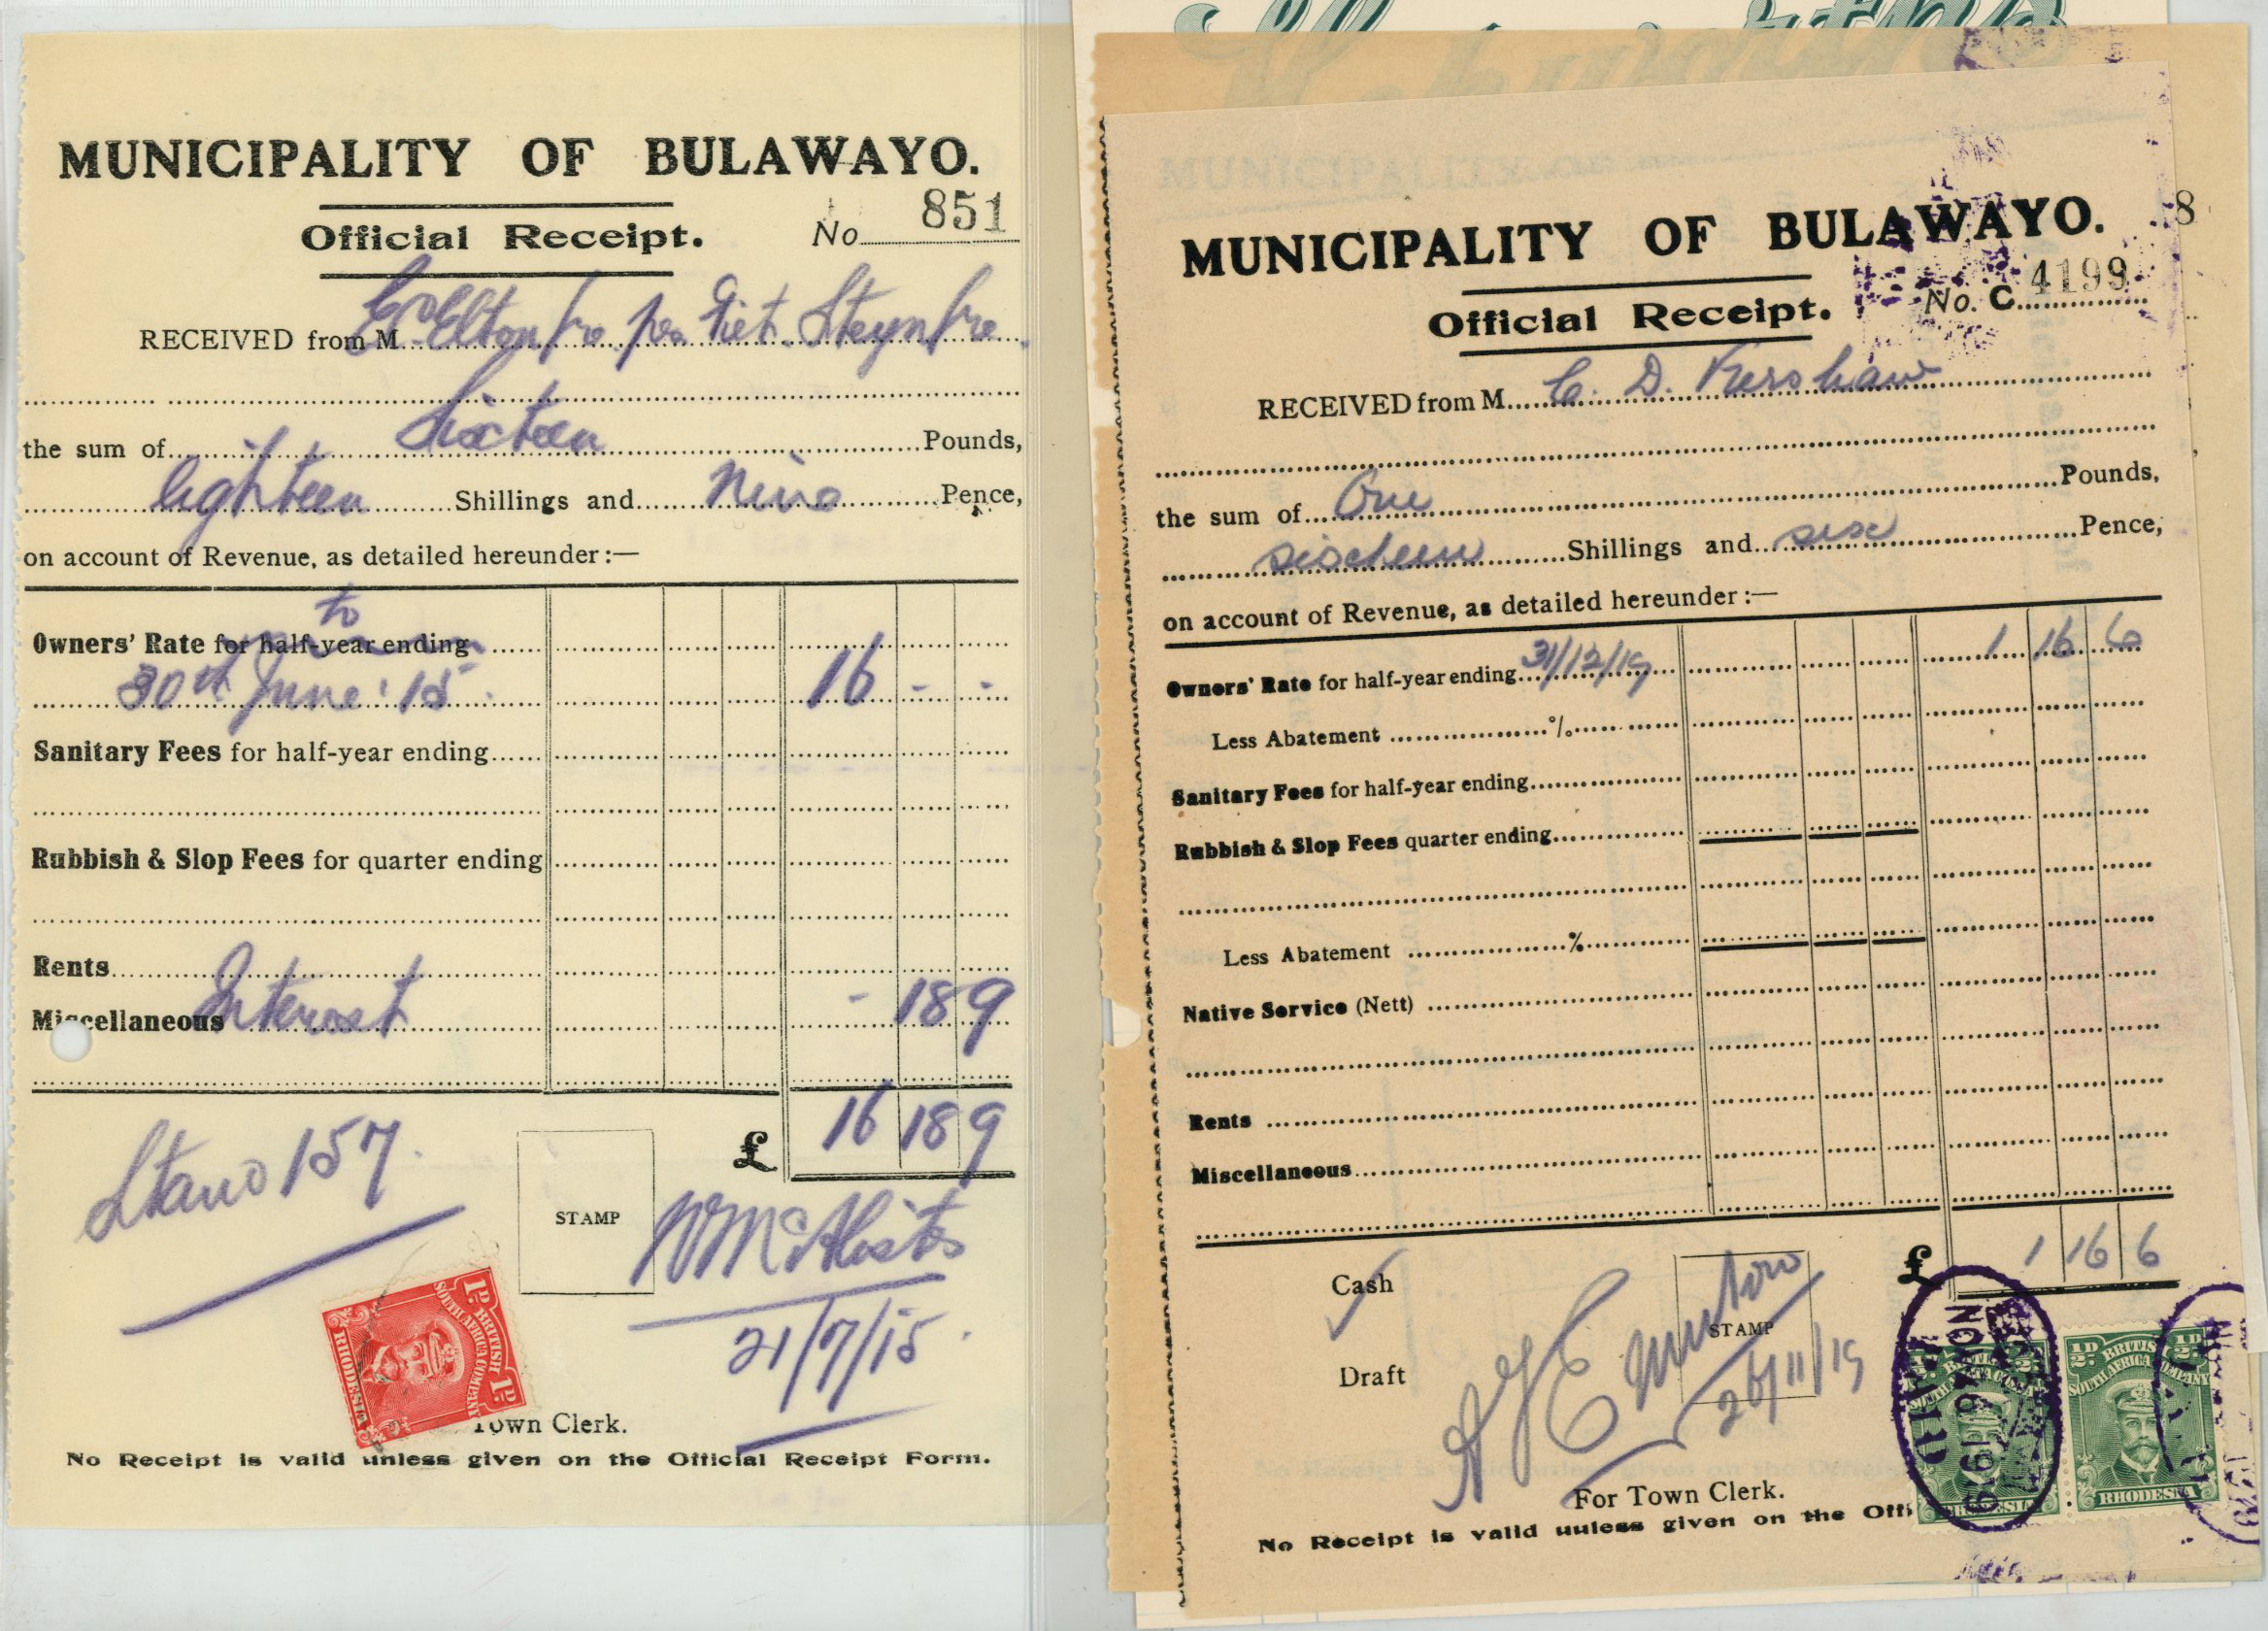 MUNICIPALITY OF BULAWAYO.
Official Receipt. No 851
RECEIVED from M Elton per Piet Steyn
the sum of Sixteen Pounds,
Eighteen Shillings and Nine Pence,
on account of Revenue, as detailed hereunder :—
to
Owners' Rate for half-year ending
30th June '15 16 - -
Sanitary Fees for half-year ending
Rubbish & Slop Fees for quarter ending
Rents
Miscellaneous Interest - 18 9
£ 16 18 9
Stand 157
STAMP
21/7/15
1D. BRITISH 1D.
SOUTH AFRICA COMPANY
RHODESIA
Town Clerk.
No Receipt is valid unless given on the Official Receipt Form.
MUNICIPALITY OF BULAWAYO.
8
Official Receipt. No. C. 4199
RECEIVED from M C. D. Kershaw
the sum of One Pounds,
sixteen Shillings and six Pence,
on account of Revenue, as detailed hereunder :—
Owners' Rate for half-year ending 31/12/19 1 16 6
Less Abatement %
Sanitary Fees for half-year ending
Rubbish & Slop Fees quarter ending
Less Abatement %
Native Service (Nett)
Rents
Miscellaneous
£ 1 16 6
Cash
STAMP
Draft
26/11/19
For Town Clerk.
No Receipt is valid uuless given on the Offi
NOV 26 1919
PAID
½D. BRITISH ½D.
SOUTH AFRICA COMPANY
RHODESIA